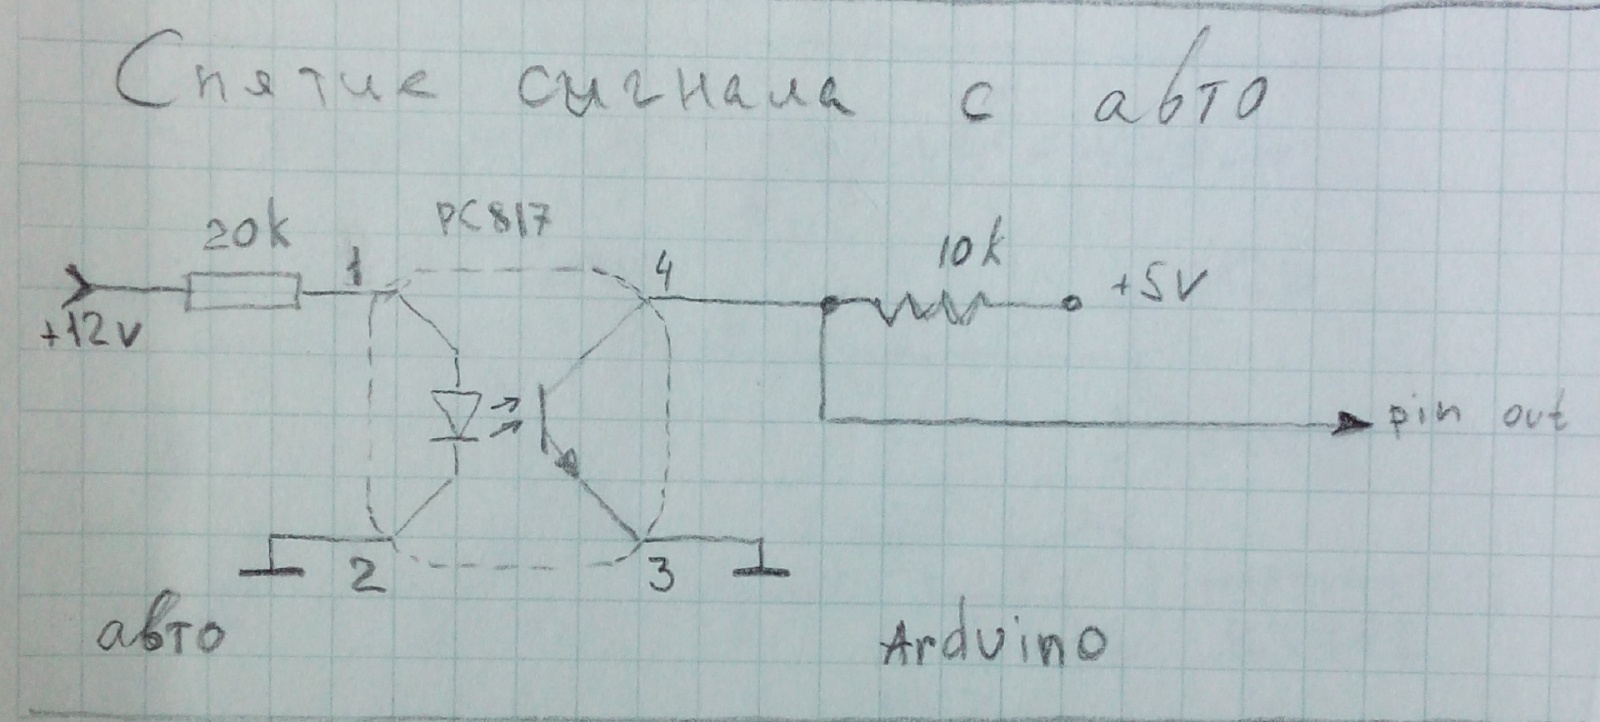 Снятие сигнала с авто
PC817
20k
1
4
10k
+5V
+12v
pin out
2
3
авто
Arduino